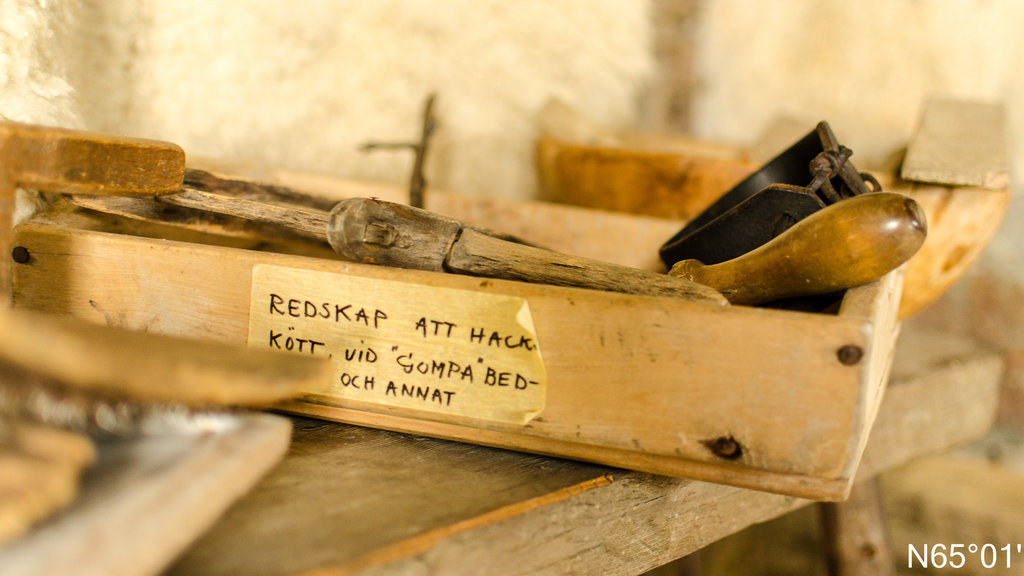 REDSKAP ATT HACK.
KÖTT, VID "GOMPA" BED-
OCH ANNAT
N65°01'